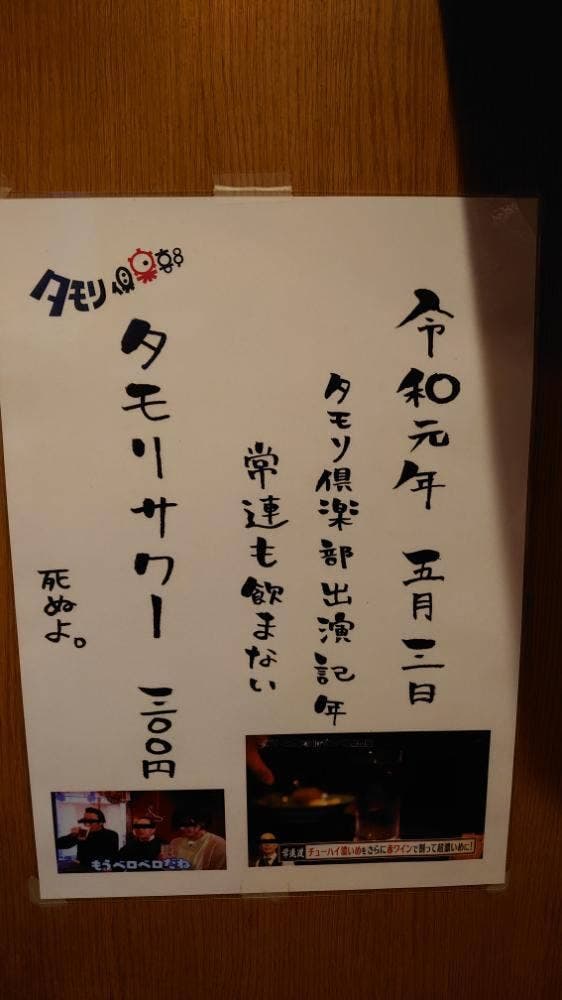 令和元年 五月三日
タモリ倶楽部出演記年
常連も飲まない
タモリ倶楽部
タモリサワー 三〇〇円
死ぬよ。
チューハイ濃いめをさらに赤ワインで割って超濃いめに!
もうベロベロだね